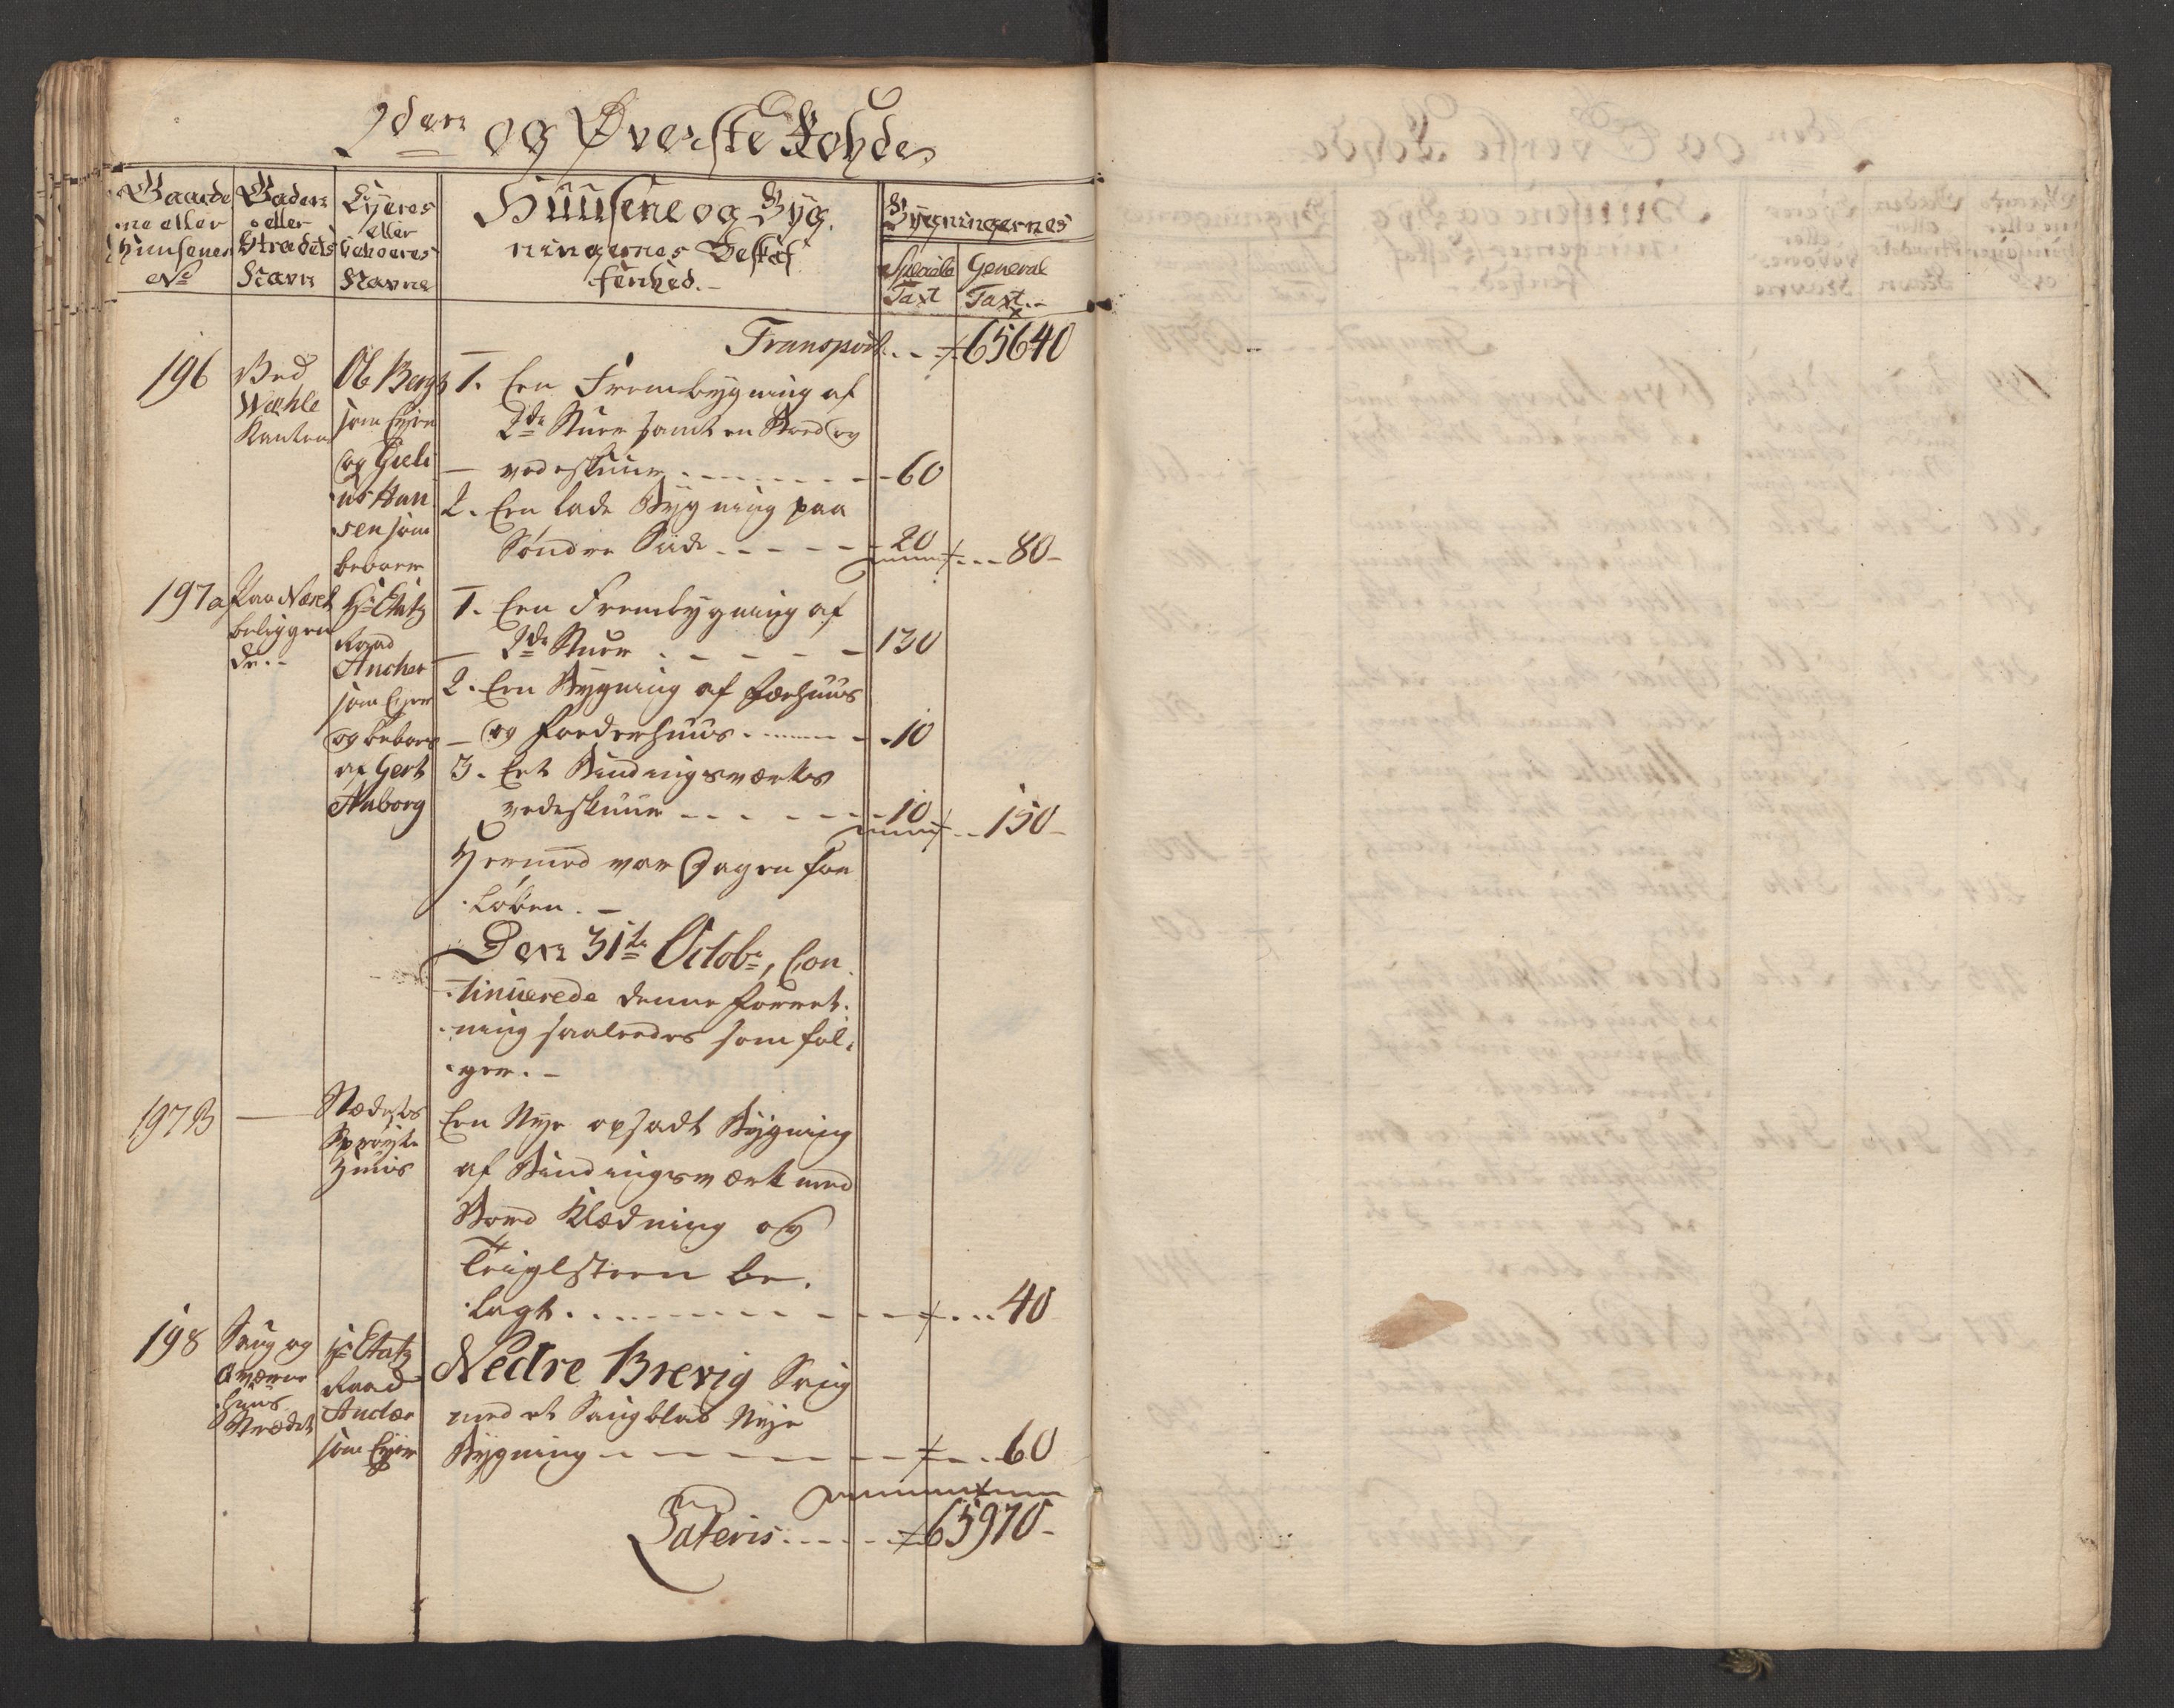 2den og Øverste Rohde
Gaarde
ne eller
Huusenes
No
Gadens
eller
Strædets
Navn
Eyeres
eller
beboeres
Navne
Huusene og Byg.
ningernes Beskaf
fenhed.-
Bygningernes
Speciele
Taxt
General
Taxt.-
Transport.. - 65640
196
Ved
Wæhle
Kanten
Ole Bergs
som Eyer
og Gieli
us Han
sen som
beboer
1. Een Frembygning af
2de Stuer samt en Bord og
vedeskuur - - - - - 60
2. Een lade Bygning paa
Søndre Siide - - - - - 20 - - - 80 -
197a
Paa Næset
beliggen
de.-
Hr Etatz
Raad
Ancher
som Eyer
og beboes
af Gert
Aaborg
1. Een Frembygning af
2de Stuer - - - - - 130
2. Een Bygning af Fæehuus
og Foederhuus - - - - - 10
3. Eet Bindingsværks
vedeskuur - - - - - 10 - - 150 -
Hermed var Dagen for
løben. -
Den 31te Octobr, Con
tinuerede denne forret.
ning saaledes som føl.
ger. -
197B
—
Stædets
Sprøyte
Huus
Een Nye opsadt Bygning
af Bindingsværk med
Bord Klædning og
Teiglsteen be.
lagt. - - - - - 40
198
Saug og
Qværne
huus
Strædet
Hr Etatz
Raad
Ancher
som Eyer
Nedre Brevig Saug
med et Saugblad Nye
Bygning - - - - - 60
Lateris - - - - - 65970 -